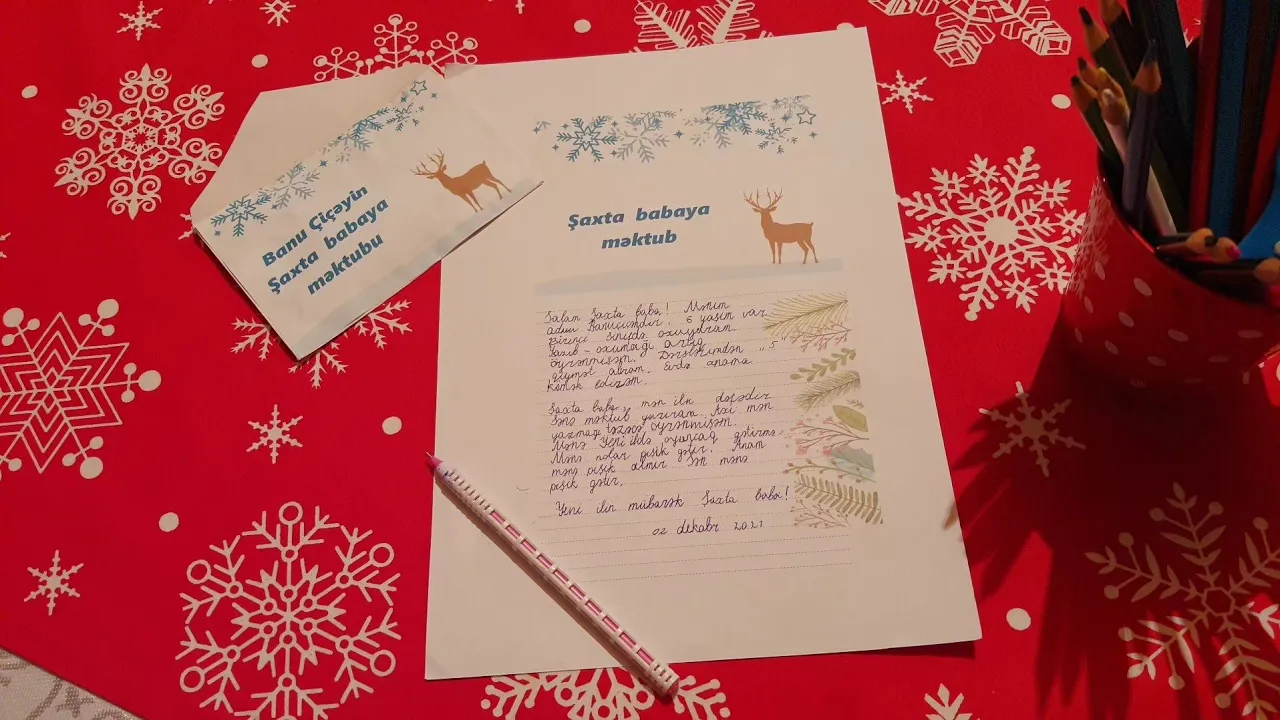 Banu Çiçəyin
Şaxta babaya
məktubu
Şaxta babaya
məktub
Salam Şaxta baba! Mənim
adım Banuçiçəkdir. 6 yaşım var.
Birinci sinifdə oxuyuram.
Yazıb-oxumağı artıq
öyrənmişəm. Dərslərimdən „5"
qiymət alıram. Evdə anama
kömək edirəm.
Şaxta baba, mən ilk dəfədir
sənə məktub yazıram. Axı mən
yazmağı təzəcə öyrənmişəm.
Mənə Yeni ildə oyuncaq gətirmə.
Mənə nolar pişik gətir. Anam
mənə pişik almır. Sən mənə
pişik gətir.
Yeni ilin mübarək Şaxta baba!
02 dekabr 2021